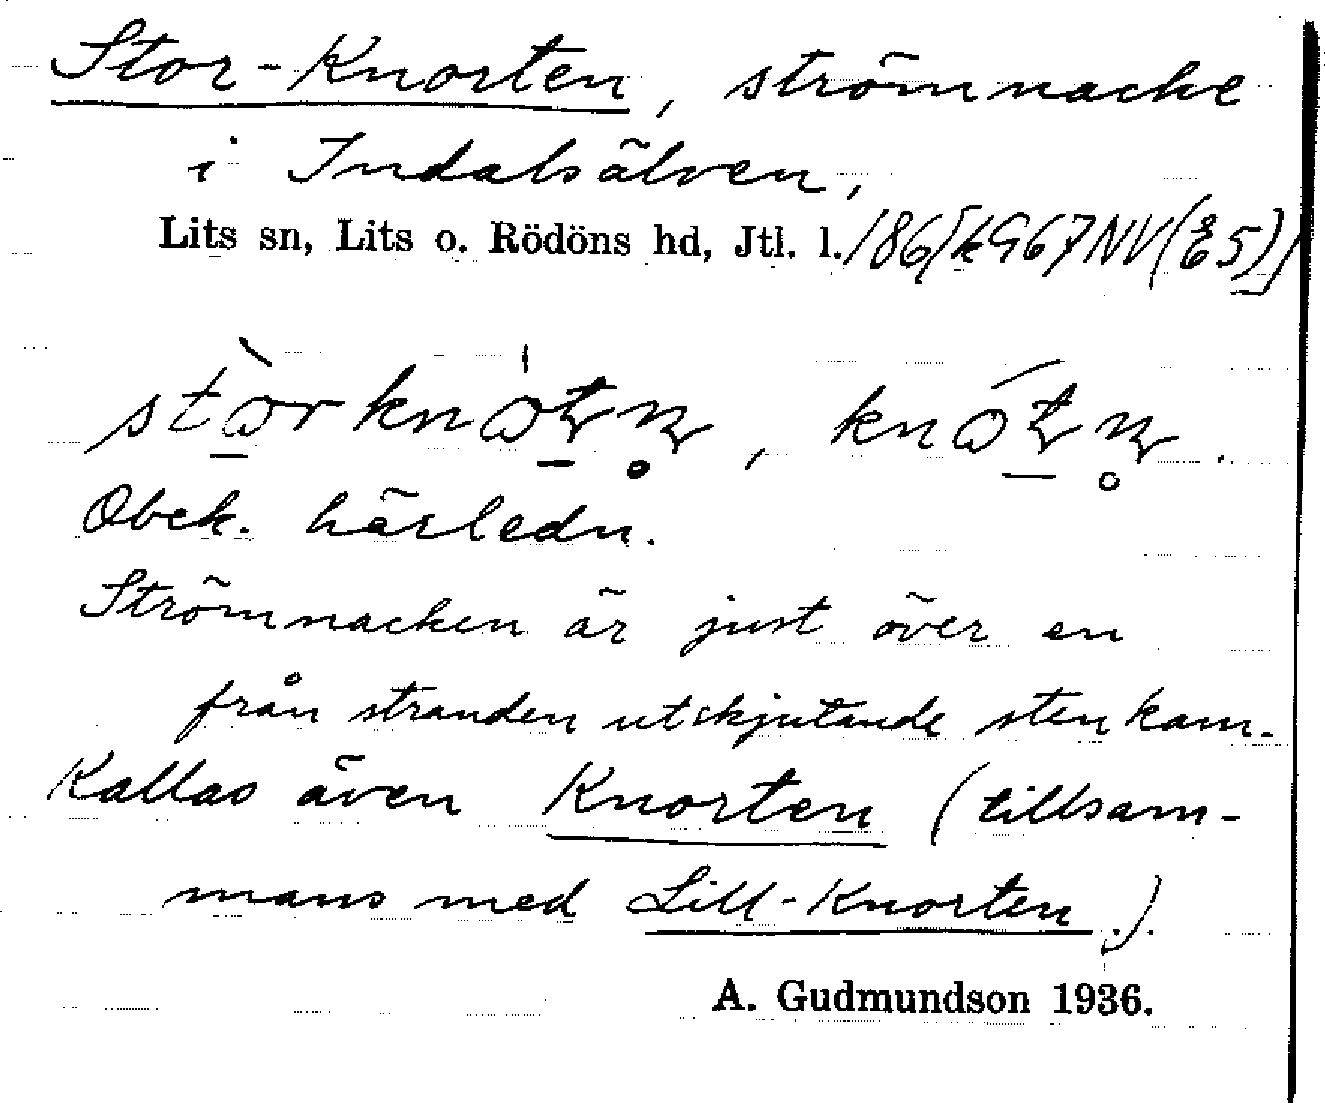 Stor-Knorten, strömnacke
i Indalsälven,
Lits sn, Lits o. Rödöns hd, Jtl. l.
Obek. härledn.
Strömnacken är just över en
från stranden utskjutande stenkam.
Kallas även Knorten (tillsam-
mans med Lill-Knorten.).
A. Gudmundson 1936.